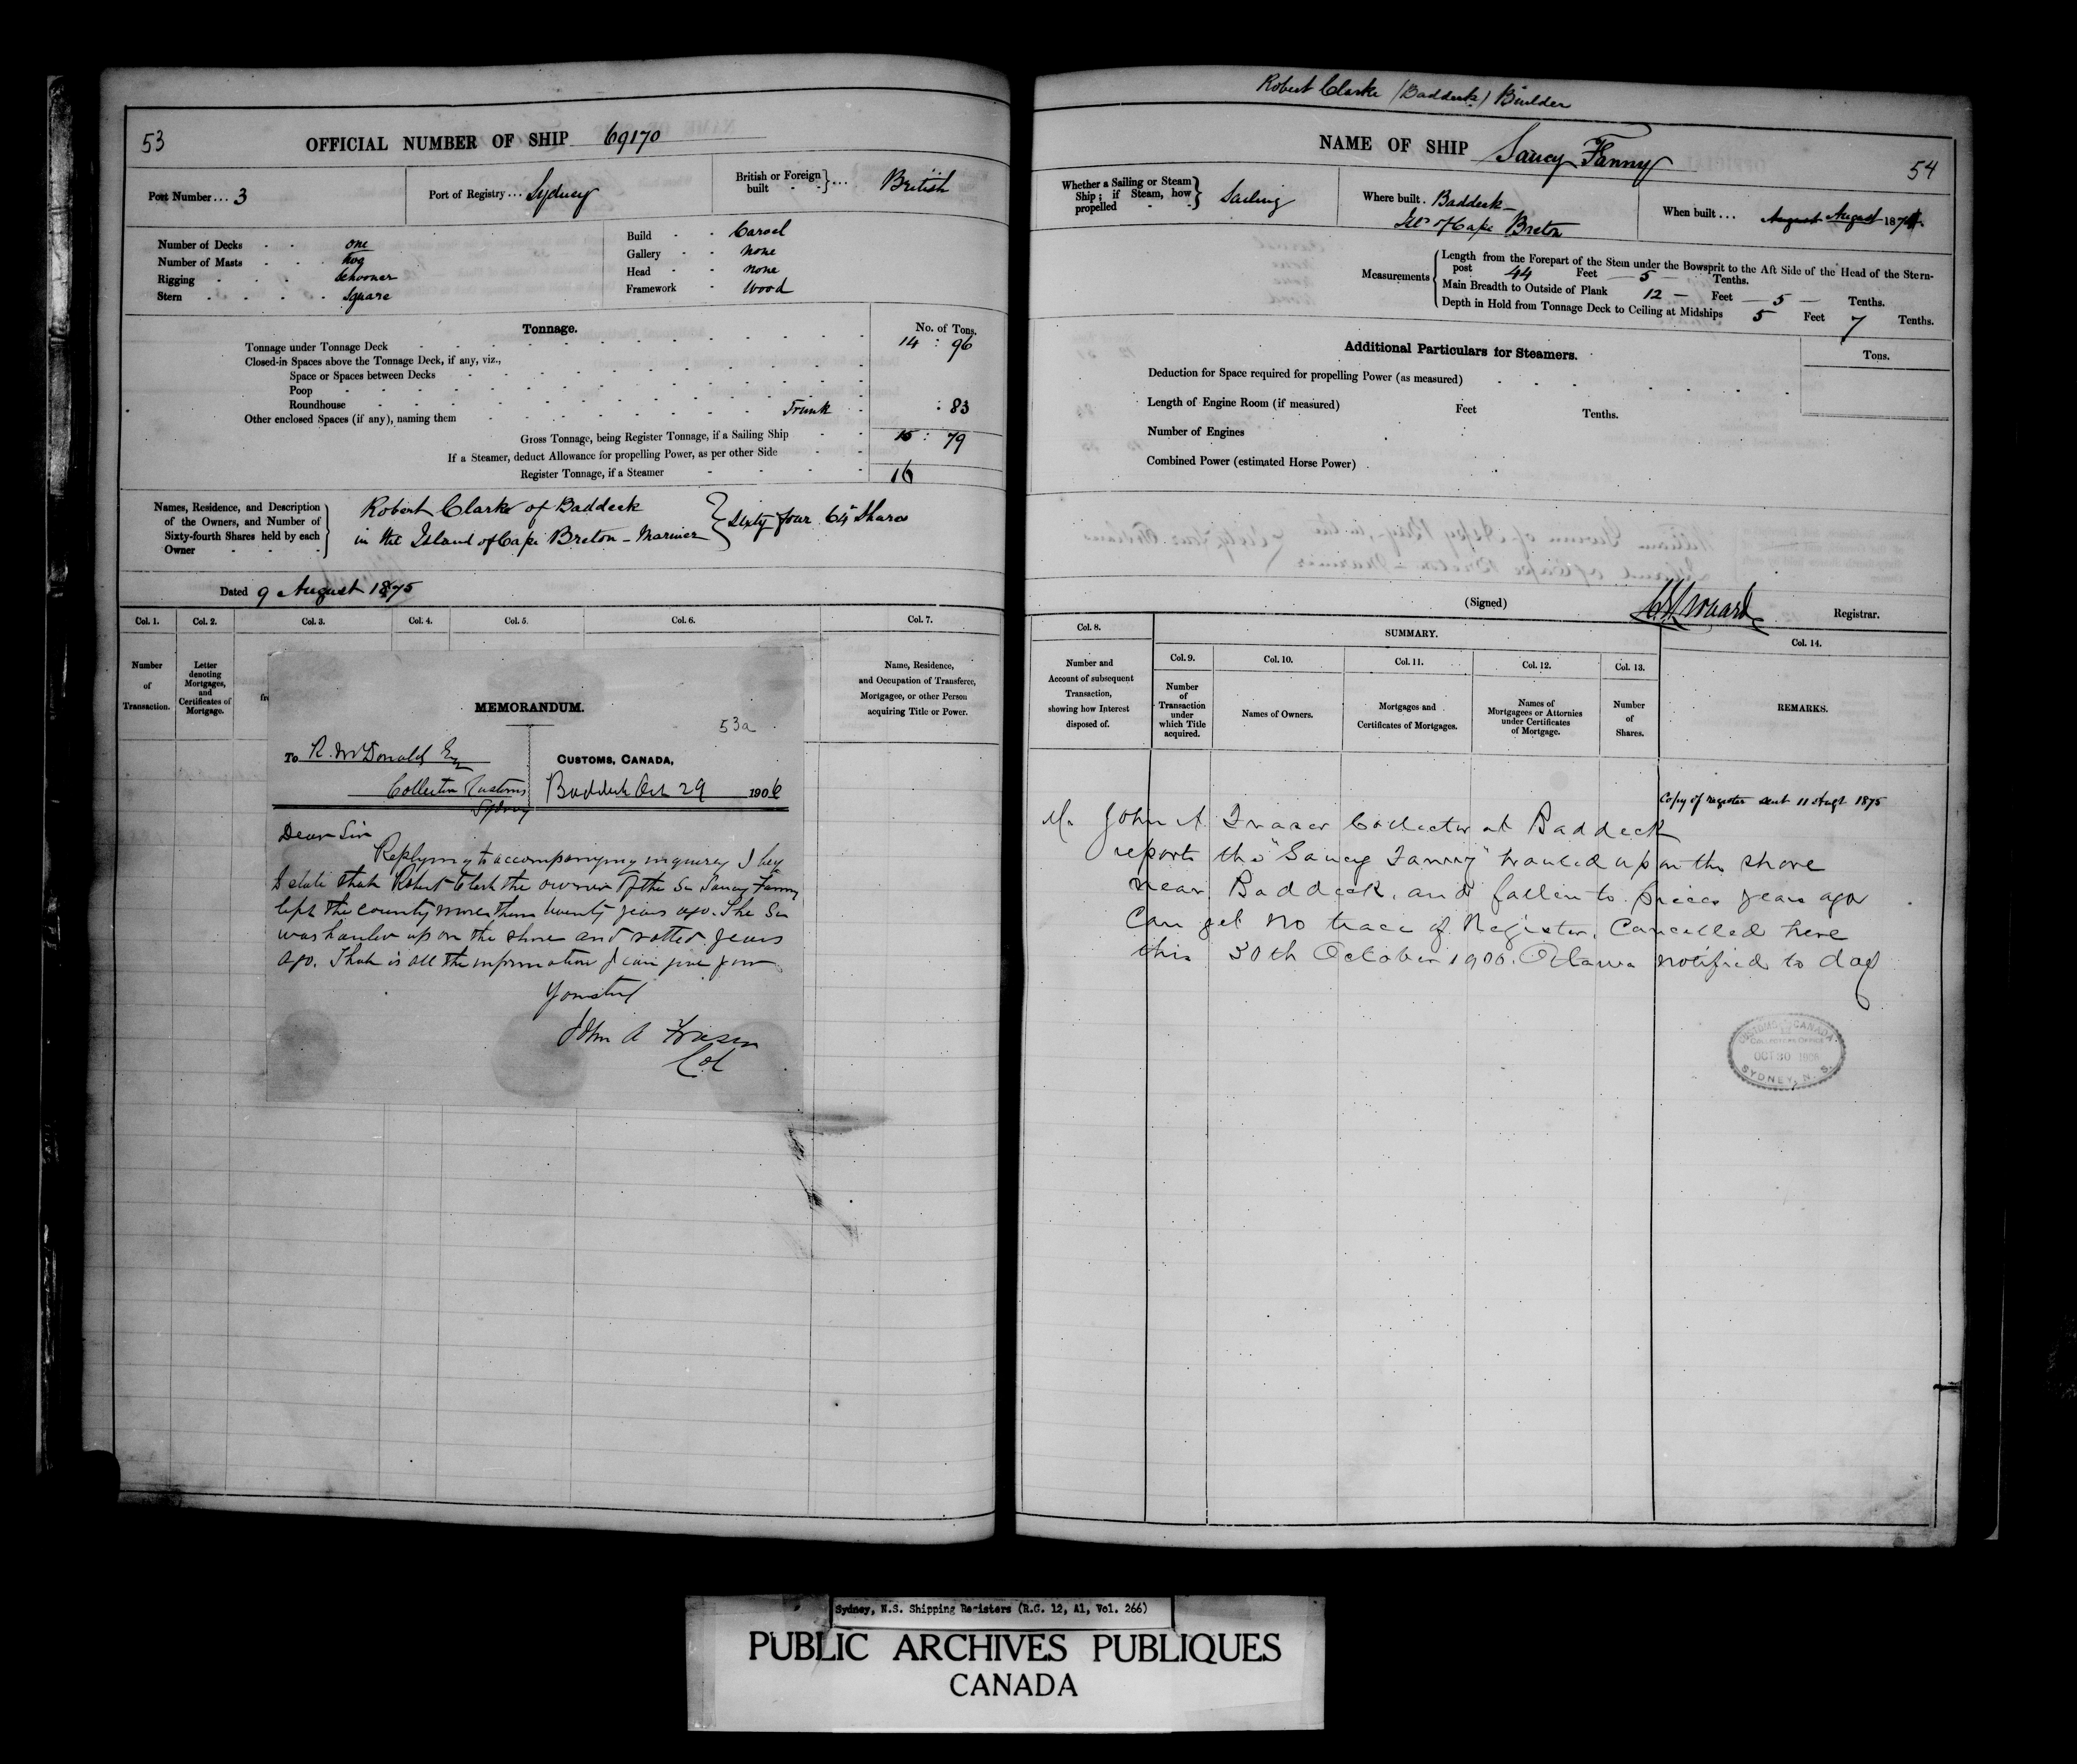 53
OFFICIAL NUMBER OF SHIP 69170
Port Number... 3
Port of Registry... Sydney
British or Foreign built } ... British
Number of Decks - - one
Number of Masts - - Two
Rigging - - - Schooner
Stern - - - - Square
Build - - Carvel
Gallery - - none
Head - - none
Framework - Wood
Tonnage.
No. of Tons.
Tonnage under Tonnage Deck 14 : 96
Closed-in Spaces above the Tonnage Deck, if any, viz.,
Space or Spaces between Decks
Poop
Roundhouse
Other enclosed Spaces (if any), naming them Trunk : 83
Gross Tonnage, being Register Tonnage, if a Sailing Ship 15 : 79
If a Steamer, deduct Allowance for propelling Power, as per other Side
Register Tonnage, if a Steamer 16
Names, Residence, and Description
of the Owners, and Number of
Sixty-fourth Shares held by each
Owner
Robert Clarke of Baddeck
in the Island of Cape Breton - Mariner } Sixty four 64th Shares
Dated 9 August 1875
Col. 1. Col. 2. Col. 3. Col. 4. Col. 5. Col. 6. Col. 7.
Number
of
Transaction.
Letter
denoting
Mortgages,
and
Certificates of
Mortgage.
Name, Residence,
and Occupation of Transferee,
Mortgagee, or other Person
acquiring Title or Power.
MEMORANDUM.
53a
To R. McDonald Esq
Collector Customs
Sydney
CUSTOMS, CANADA,
Baddeck Oct 29 1906
Dear Sir
Replying to accompanying inquiry I beg
to state that Robert Clark the owner of the Sr Saucy Fanny
left the county more than twenty years ago. The Sr
was hauled up on the shore and rotted years
ago. That is all the information I can give you
Yours truly
John A Fraser
Col
Robert Clarke (Baddeck) Builder
NAME OF SHIP Saucy Fanny
54
Whether a Sailing or Steam
Ship; if Steam, how
propelled } Sailing
Where built. Baddeck -
Isl. of Cape Breton
When built... August August 187
Measurements
Length from the Forepart of the Stem under the Bowsprit to the Aft Side of the Head of the Stern-
post 44 Feet 5 Tenths.
Main Breadth to Outside of Plank 12 - Feet 5 - Tenths.
Depth in Hold from Tonnage Deck to Ceiling at Midships 5 Feet 7 Tenths.
Additional Particulars for Steamers.
Tons.
Deduction for Space required for propelling Power (as measured)
Length of Engine Room (if measured) Feet Tenths.
Number of Engines
Combined Power (estimated Horse Power)
(Signed) Registrar.
Col. 8. SUMMARY. Col. 14.
Col. 9. Col. 10. Col. 11. Col. 12. Col. 13.
Number and
Account of subsequent
Transaction,
showing how Interest
disposed of.
Number
of
Transaction
under
which Title
acquired.
Names of Owners.
Mortgages and
Certificates of Mortgages.
Names of
Mortgagees or Attornies
under Certificates
of Mortgage.
Number
of
Shares.
REMARKS.
Copy of register sent 11 Augt 1875
Mr John A Fraser Collector at Baddeck
reports the "Saucy Fanny" hauled up on the shore
near Baddeck, and fallen to pieces years ago
Can get no trace of Register. Cancelled here
this 30th October 1906. Ottawa notified to day
CUSTOMS CANADA
COLLECTORS OFFICE
OCT 30
SYDNEY, N. S.
Sydney, N.S. Shipping Registers (R.G. 12, A1, Vol. 266)
PUBLIC ARCHIVES PUBLIQUES
CANADA